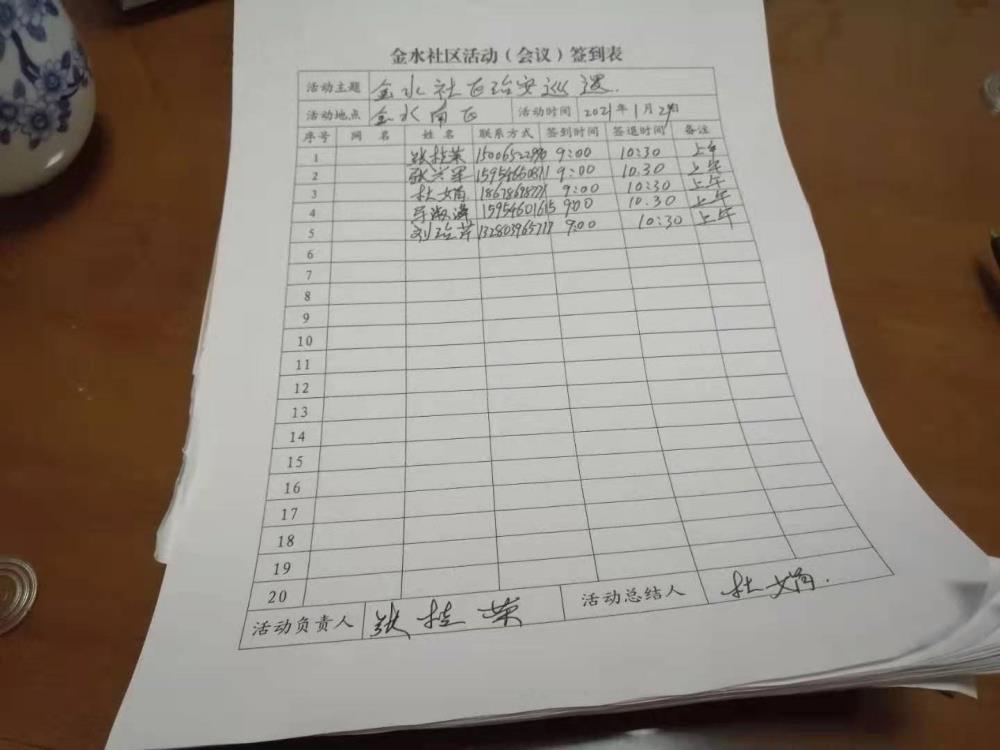 金水社区活动(会议)签到表
活动主题 金水社区治安巡逻.
活动地点 金水南区 活动时间 2021年1月2日
序号 网名 姓名 联系方式 签到时间 签退时间 备注
1 张桂荣 9:00 10:30 上午
2 张兴军 9:00 10.30 上午
3 杜娟 9:00 10:30 上午
4 15954601615 9:00 10.30 上午
5 9:00 10:30 上午
6
7
8
9
10
11
12
13
14
15
16
17
18
19
20
活动负责人 张桂荣 活动总结人 杜娟.